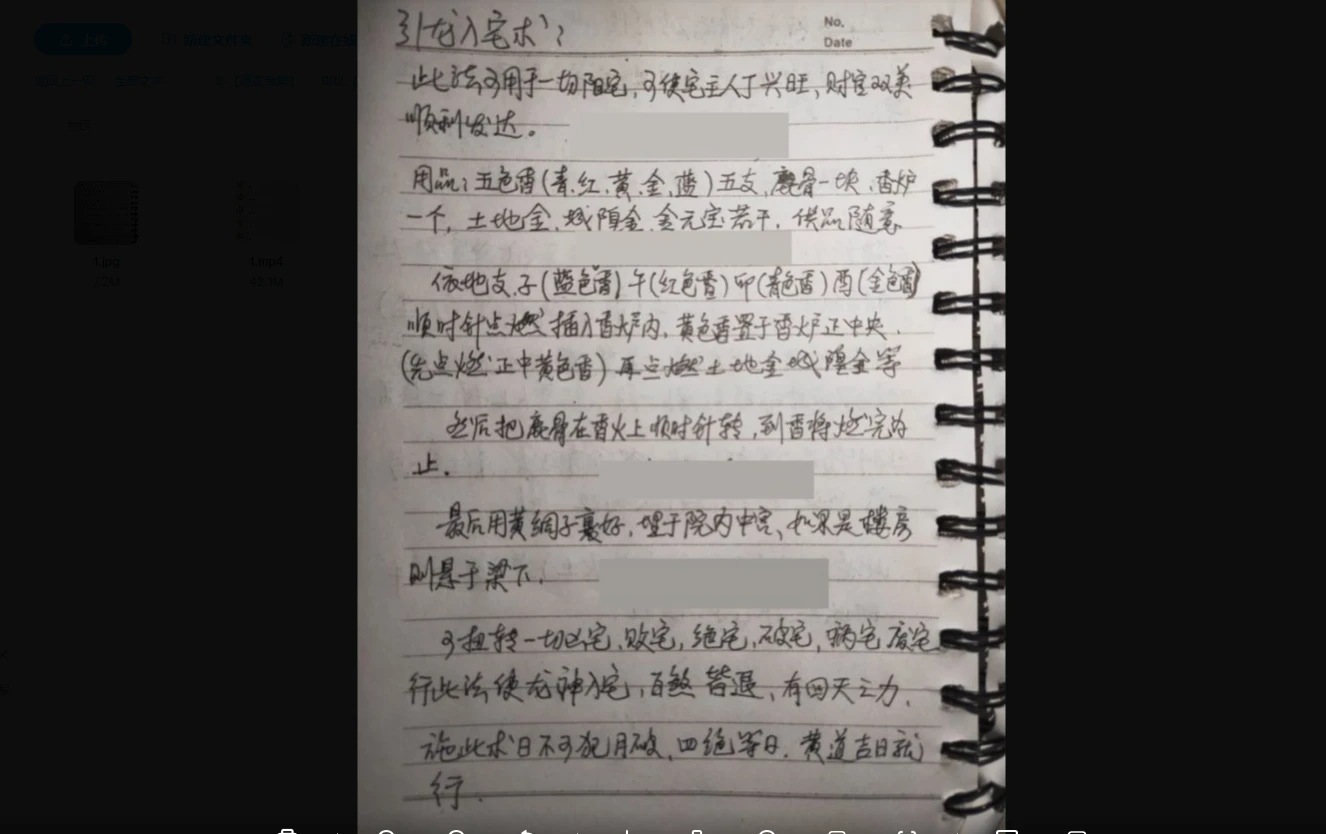 引龙入宅术：
No.
Date
此法可用于一切阳宅，可使宅主人丁兴旺、财官双美
顺利发达。
用品：五色香（青、红、黄、金、蓝）五支、鹿骨一块、香炉
一个，土地金、城隍金、金元宝若干，供品随意
依地支、子（蓝色香）午（红色香）卯（青色香）酉（金色香）
顺时针点燃插入香炉内、黄色香置于香炉正中央、
（先点燃正中黄色香）再点燃土地金城隍金等
然后把鹿骨在香火上顺时针转，到香将燃完为
止。
最后用黄绸子裹好，埋于院内中宫、如果是楼房
则悬于梁下、
可扭转一切凶宅、败宅，绝宅、破宅，病宅废宅
行此法使龙神入宅，百煞皆退、有回天之力、
施此术日不可犯月破、四绝等日、黄道吉日就
行、
1.jpg
1.mp4